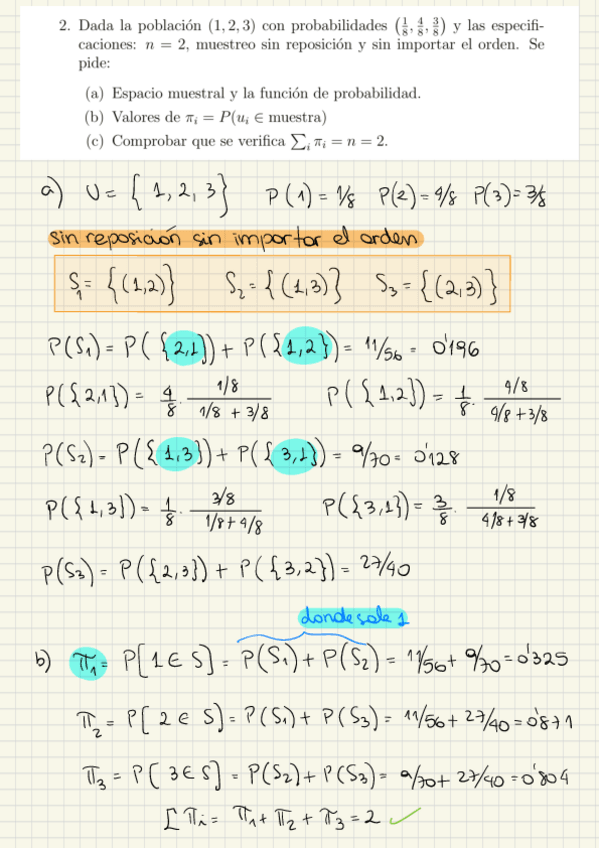 2. Dada la población (1, 2, 3) con probabilidades (1/8, 4/8, 3/8) y las especifi-
caciones: n = 2, muestreo sin reposición y sin importar el orden. Se
pide:
(a) Espacio muestral y la función de probabilidad.
(b) Valores de πᵢ = P(uᵢ ∈ muestra)
(c) Comprobar que se verifica ∑ᵢ πᵢ = n = 2.
a) U = { 1, 2, 3 } P(1) = 1/8 P(2) = 4/8 P(3) = 3/8
sin reposición sin importar el orden
S₁ = {(1,2)} S₂ = {(1,3)} S₃ = {(2,3)}
P(S₁) = P({2,1}) + P({1,2}) = 11/56 = 0'196
P({2,1}) = 4/8 · (1/8)/(1/8 + 3/8) P({1,2}) = 1/8 · (4/8)/(4/8 + 3/8)
P(S₂) = P({1,3}) + P({3,1}) = 9/70 = 0'128
P({1,3}) = 1/8 · (3/8)/(1/8 + 4/8) P({3,1}) = 3/8 · (1/8)/(4/8 + 3/8)
P(S₃) = P({2,3}) + P({3,2}) = 27/40
donde sale 1
b) π₁ = P[1 ∈ S] = P(S₁) + P(S₂) = 11/56 + 9/70 = 0'325
π₂ = P[2 ∈ S] = P(S₁) + P(S₃) = 11/56 + 27/40 = 0'871
π₃ = P[3 ∈ S] = P(S₂) + P(S₃) = 9/70 + 27/40 = 0'804
Σ πᵢ = π₁ + π₂ + π₃ = 2 ✓